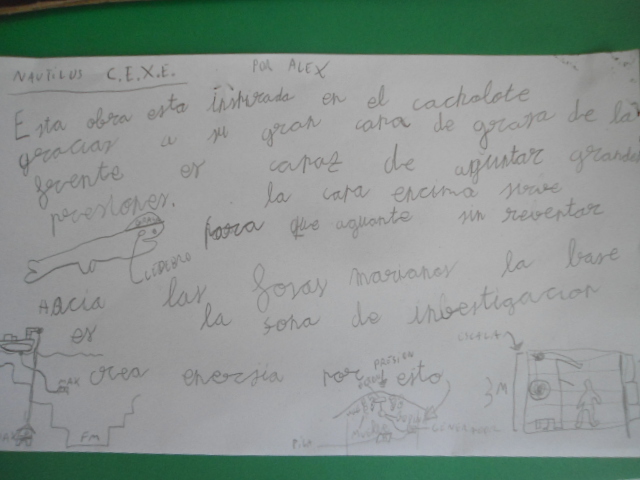 NAUTILUS C.E.X.E. POR ALEX
Esta obra esta inspirada en el cachalote
gracias a su gran capa de grasa de la
frente es capaz de aguntar grandes
presiones. la capa encima sirve
para que aguante sin reventar
LIDRORO
Hacia las fosas marianas la base
es la sona de investigacion
ESCALA
crea energia por esto
PRESION
3M
FM